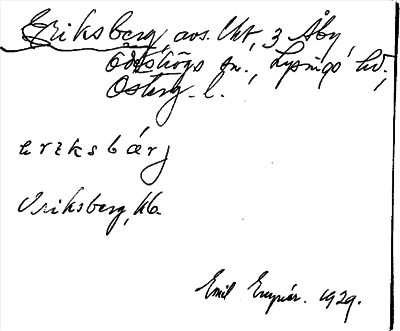 Eriksberg, avs. Utt, 3 Åby
Ödeshögs sn., Lysings hd,
Österg. l.
erɩksbärj
Eriksberg, kb.
Emil 1929.